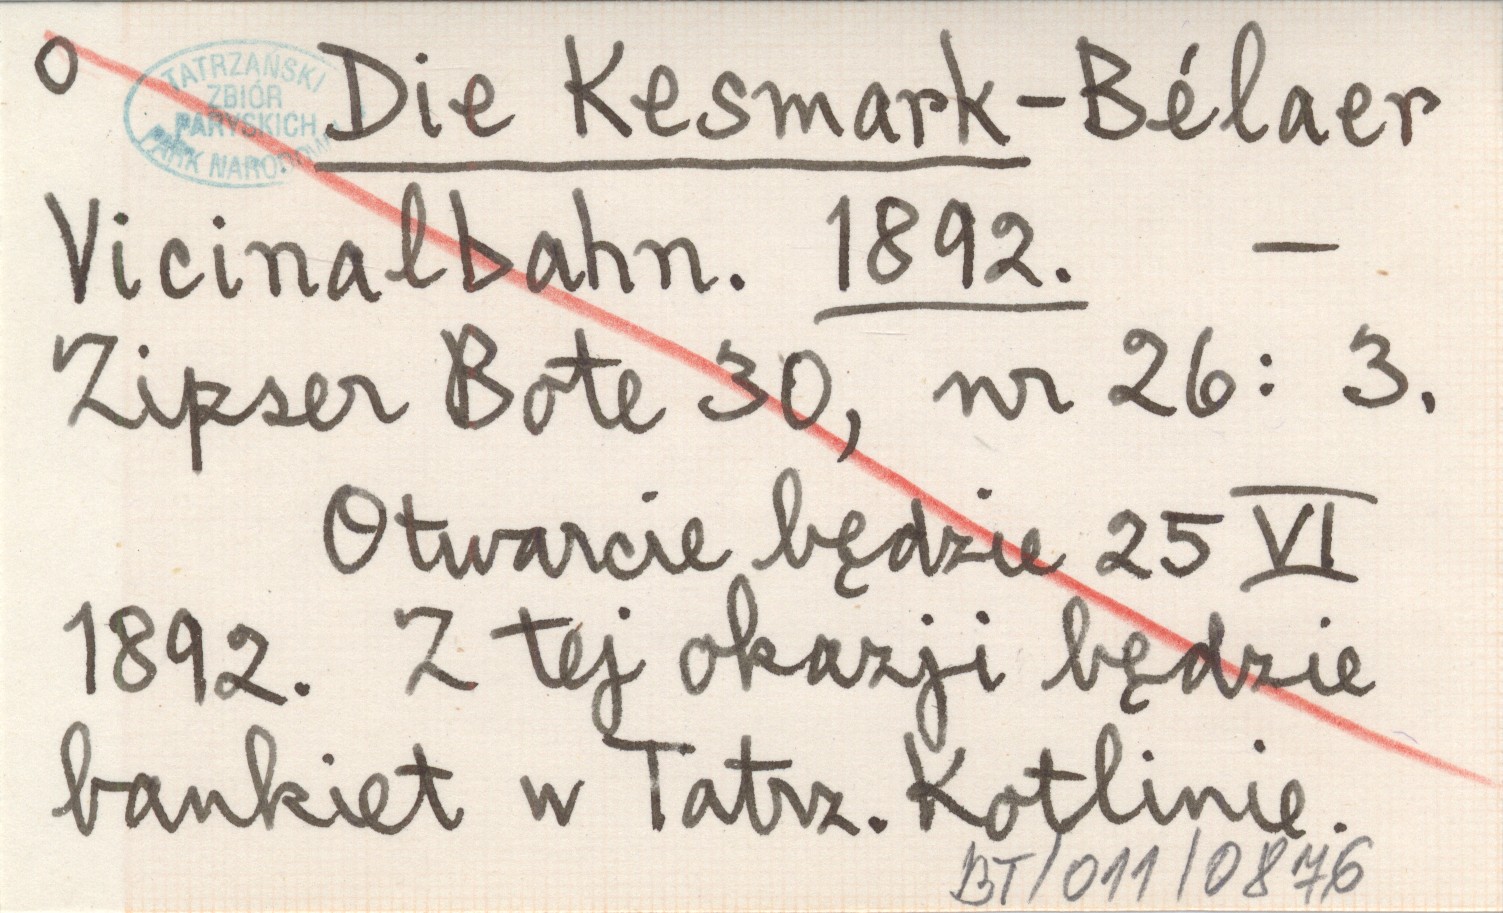 o
TATRZAŃSKI
ZBIÓR
PARYSKICH
PARK NARODOWY
Die Kesmark-Bélaer
Vicinalbahn. 1892. –
Zipser Bote 30, nr 26: 3.
Otwarcie będzie 25 VI
1892. Z tej okazji będzie
bankiet w Tatrz. Kotlinie.
BT/011/0876